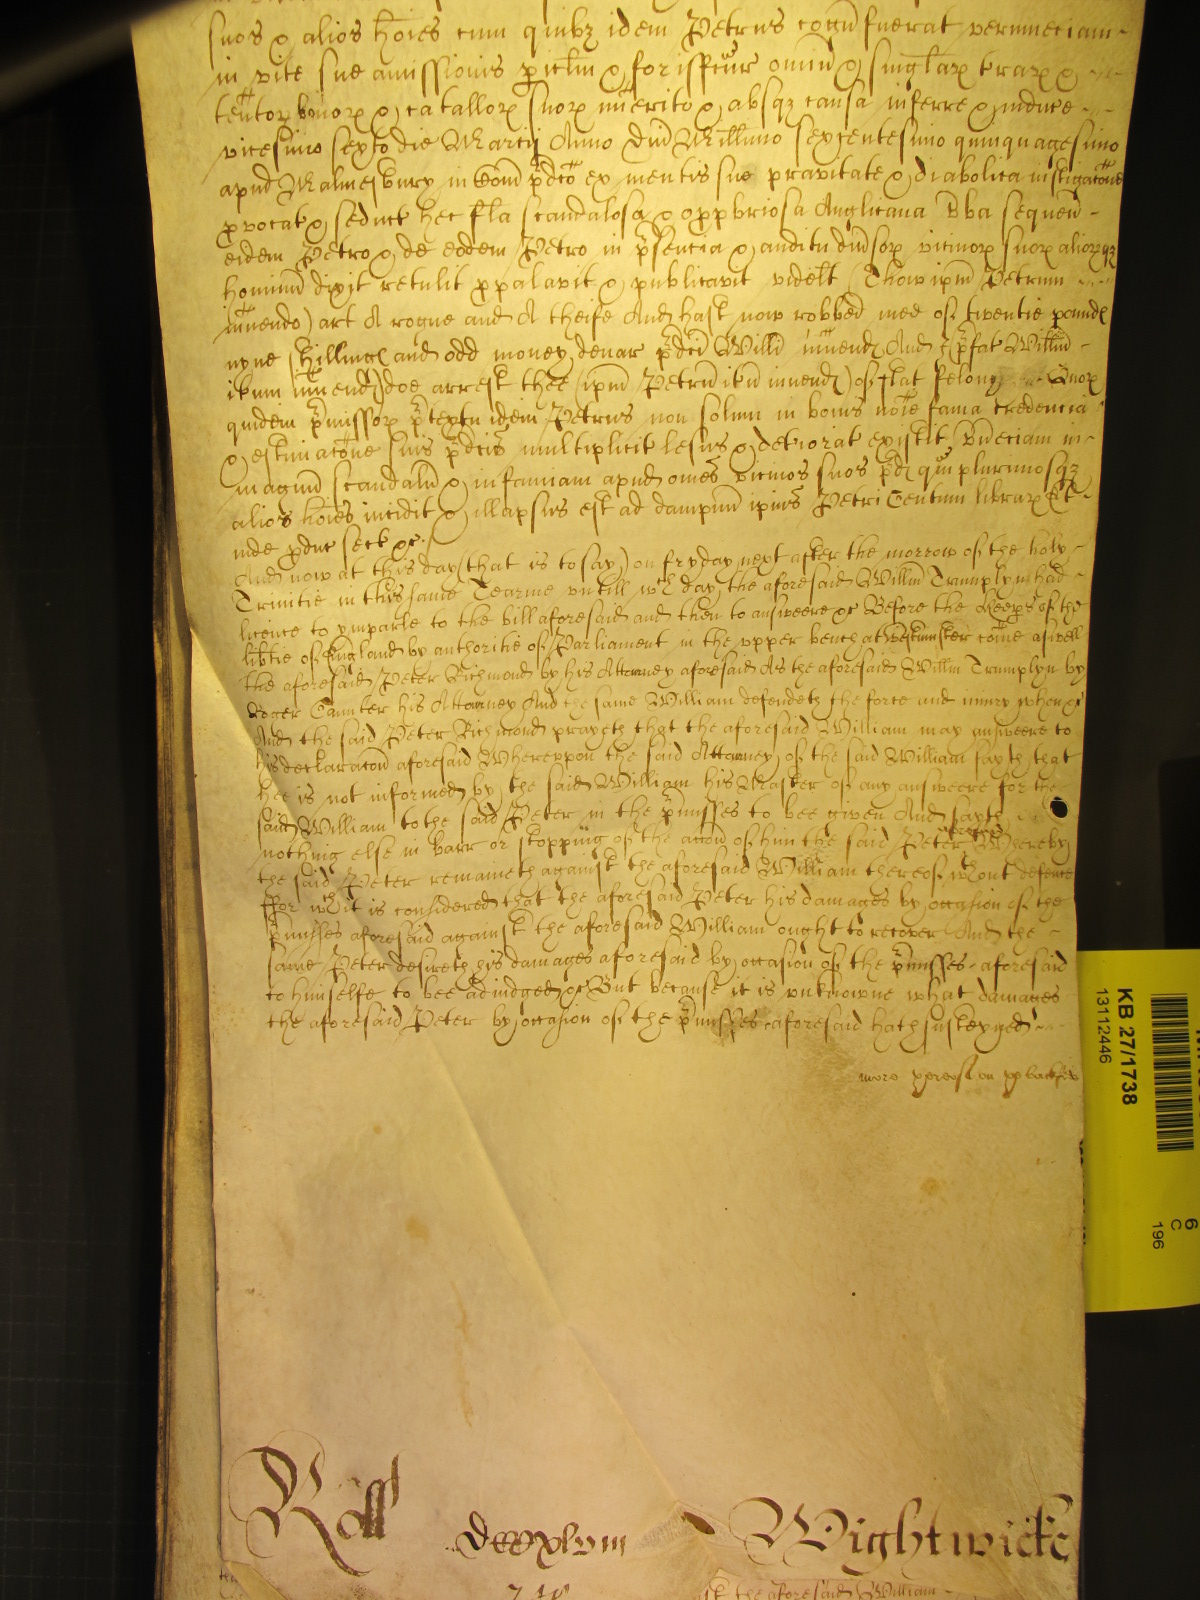 suos & alios hoies cum quibz idem Petrus cogn fuerat verumeciam
in vite sue amissionis piclm & forisfcur omniu & singlar trar &
tentor bonor & catallor suor imerito & absqz causa inferre & inducere
vicesimo sexto die Marcij Anno Dni Millimo sexcentesimo quinquagesimo
apud Malmesbury in Com pdco ex mentis sue pravitate & diabolica instigacoe
pvocat & seduct hec fsa scandalosa & opprbriosa Anglicana vba sequen
eidem Petro & de eodem Petro in psencia & auditu divsor vicinor suor aliorqz
hominu dixit retulit ppalavit & publicavit vidlt Thow ipm Petrum
inuendo) art A rogue and A theife And hast now robbed mee of twentie pound
nyne shilling and odd money denar pdci Willi inuend And I pfat Willm
ibm inuend) doe arrest thee (ipm Petru ibm inuend) of flat felony Quor
quidem pmissor ptextu idem Petrus non solum in bonis noie fama credencia
& estimacoe suis pdcis multiplicit lesus & deteriorat existit vneciam in
magnu scandalu & infamiam apud omes vicinos suos pd quplurimosqz
alios hoies incidit & illapsus est ad dampnu ipius Petri Centum librar Et
inde pduc sect &c
And now at this day (that is to say) on fryday next after the morrow of the holy
Trinitie in this same Tearme vntill wch day the aforesaid Willm Trumplyn had
licence to ymparle to the bill aforesaid and then to answeere &c Before the Keeps of the
libtie of England by authoritie of Parliament in the vpper bench at Westminster come aswell
the aforesaid Peter Richmond by his Attorney aforesaid As the aforesaid Willm Trumplyn by
Roger his Attorney And the same William defendeth the force and iniury when &c
And the said Peter Richmond prayeth that the aforesaid William may answeere to
his declaracon aforesaid Wherevppon the said Attorney of the said William sayth that
hee is not informed by the said William his Master of any answeere for the
said William to the said Peter in the pmisses to bee given And sayth
nothing else in barr or stopping of the accon of him the said Peter Whereby
the said Peter remaineth against the aforesaid William thereof wthout defence
ffor wch it is considered that the aforesaid Peter his damages by occasion of the
pmisses aforesaid against the aforesaid William ought to recover And the
same Peter desireth his damages aforesaid by occasion of the pmisses aforesaid
to himselfe to bee adiudged &c But because it is vnknowne what damages
the aforesaid Peter by occasion of the pmisses aforesaid hath susteyned
more
KB 27/1738
13112446
6
C
196
Roll
Wightwicke
the aforesaid William